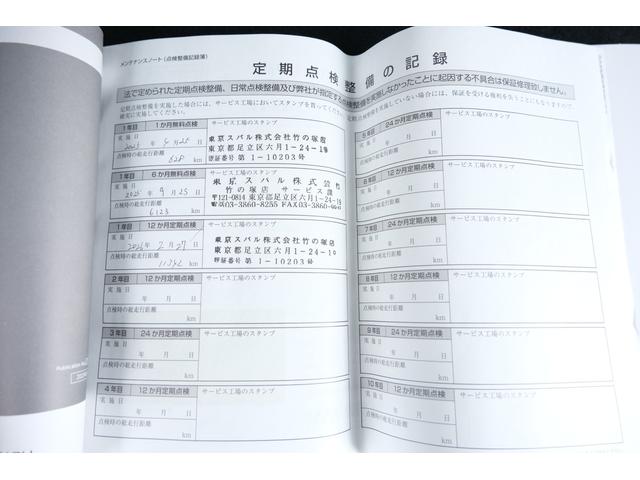 メンテナンスノート(点検整備記録簿)
定期点検整備の記録
法で定められた定期点検整備、日常点検整備及び弊社が指定する点検整備を実施しなかったことに起因する不具合は保証修理致しません。
定期点検整備を実施した場合には、サービス工場においてスタンプを貰ってください。
確実に実施してください。
1年目 1か月無料点検 サービス工場のスタンプ
実施日
年 月 日
点検時の総走行距離
km
東京スバル株式会社竹の塚店
東京都足立区六月1-24-1
認証番号 第1-10203号
1年目 6か月無料点検 サービス工場のスタンプ
実施日
2025年 9月25日
点検時の総走行距離
6123 km
東京スバル株式会社
竹の塚店 サービス課
〒121-0814 東京都足立区六月1-24-1
☎03-3860-8255 FAX03-3860-
1年目 12か月定期点検 サービス工場のスタンプ
実施日
年 2月27日
点検時の総走行距離
km
東京スバル株式会社竹の塚店
東京都足立区六月1-24-1
認証番号 第1-10203号
2年目 12か月定期点検 サービス工場のスタンプ
実施日
年 月 日
点検時の総走行距離
km
3年目 24か月定期点検 サービス工場のスタンプ
実施日
年 月 日
点検時の総走行距離
km
4年目 12か月定期点検 サービス工場のスタンプ
実施日
年 月 日
点検時の総走行距離
km
5年目 24か月定期点検 サービス工場のスタンプ
実施日
年 月 日
点検時の総走行距離
km
6年目 12か月定期点検 サービス工場のスタンプ
実施日
年 月 日
点検時の総走行距離
km
7年目 24か月定期点検 サービス工場のスタンプ
実施日
年 月 日
点検時の総走行距離
km
8年目 12か月定期点検 サービス工場のスタンプ
実施日
年 月 日
点検時の総走行距離
km
9年目 24か月定期点検 サービス工場のスタンプ
実施日
年 月 日
点検時の総走行距離
km
10年目 12か月定期点検 サービス工場のスタンプ
実施日
年 月 日
点検時の総走行距離
km